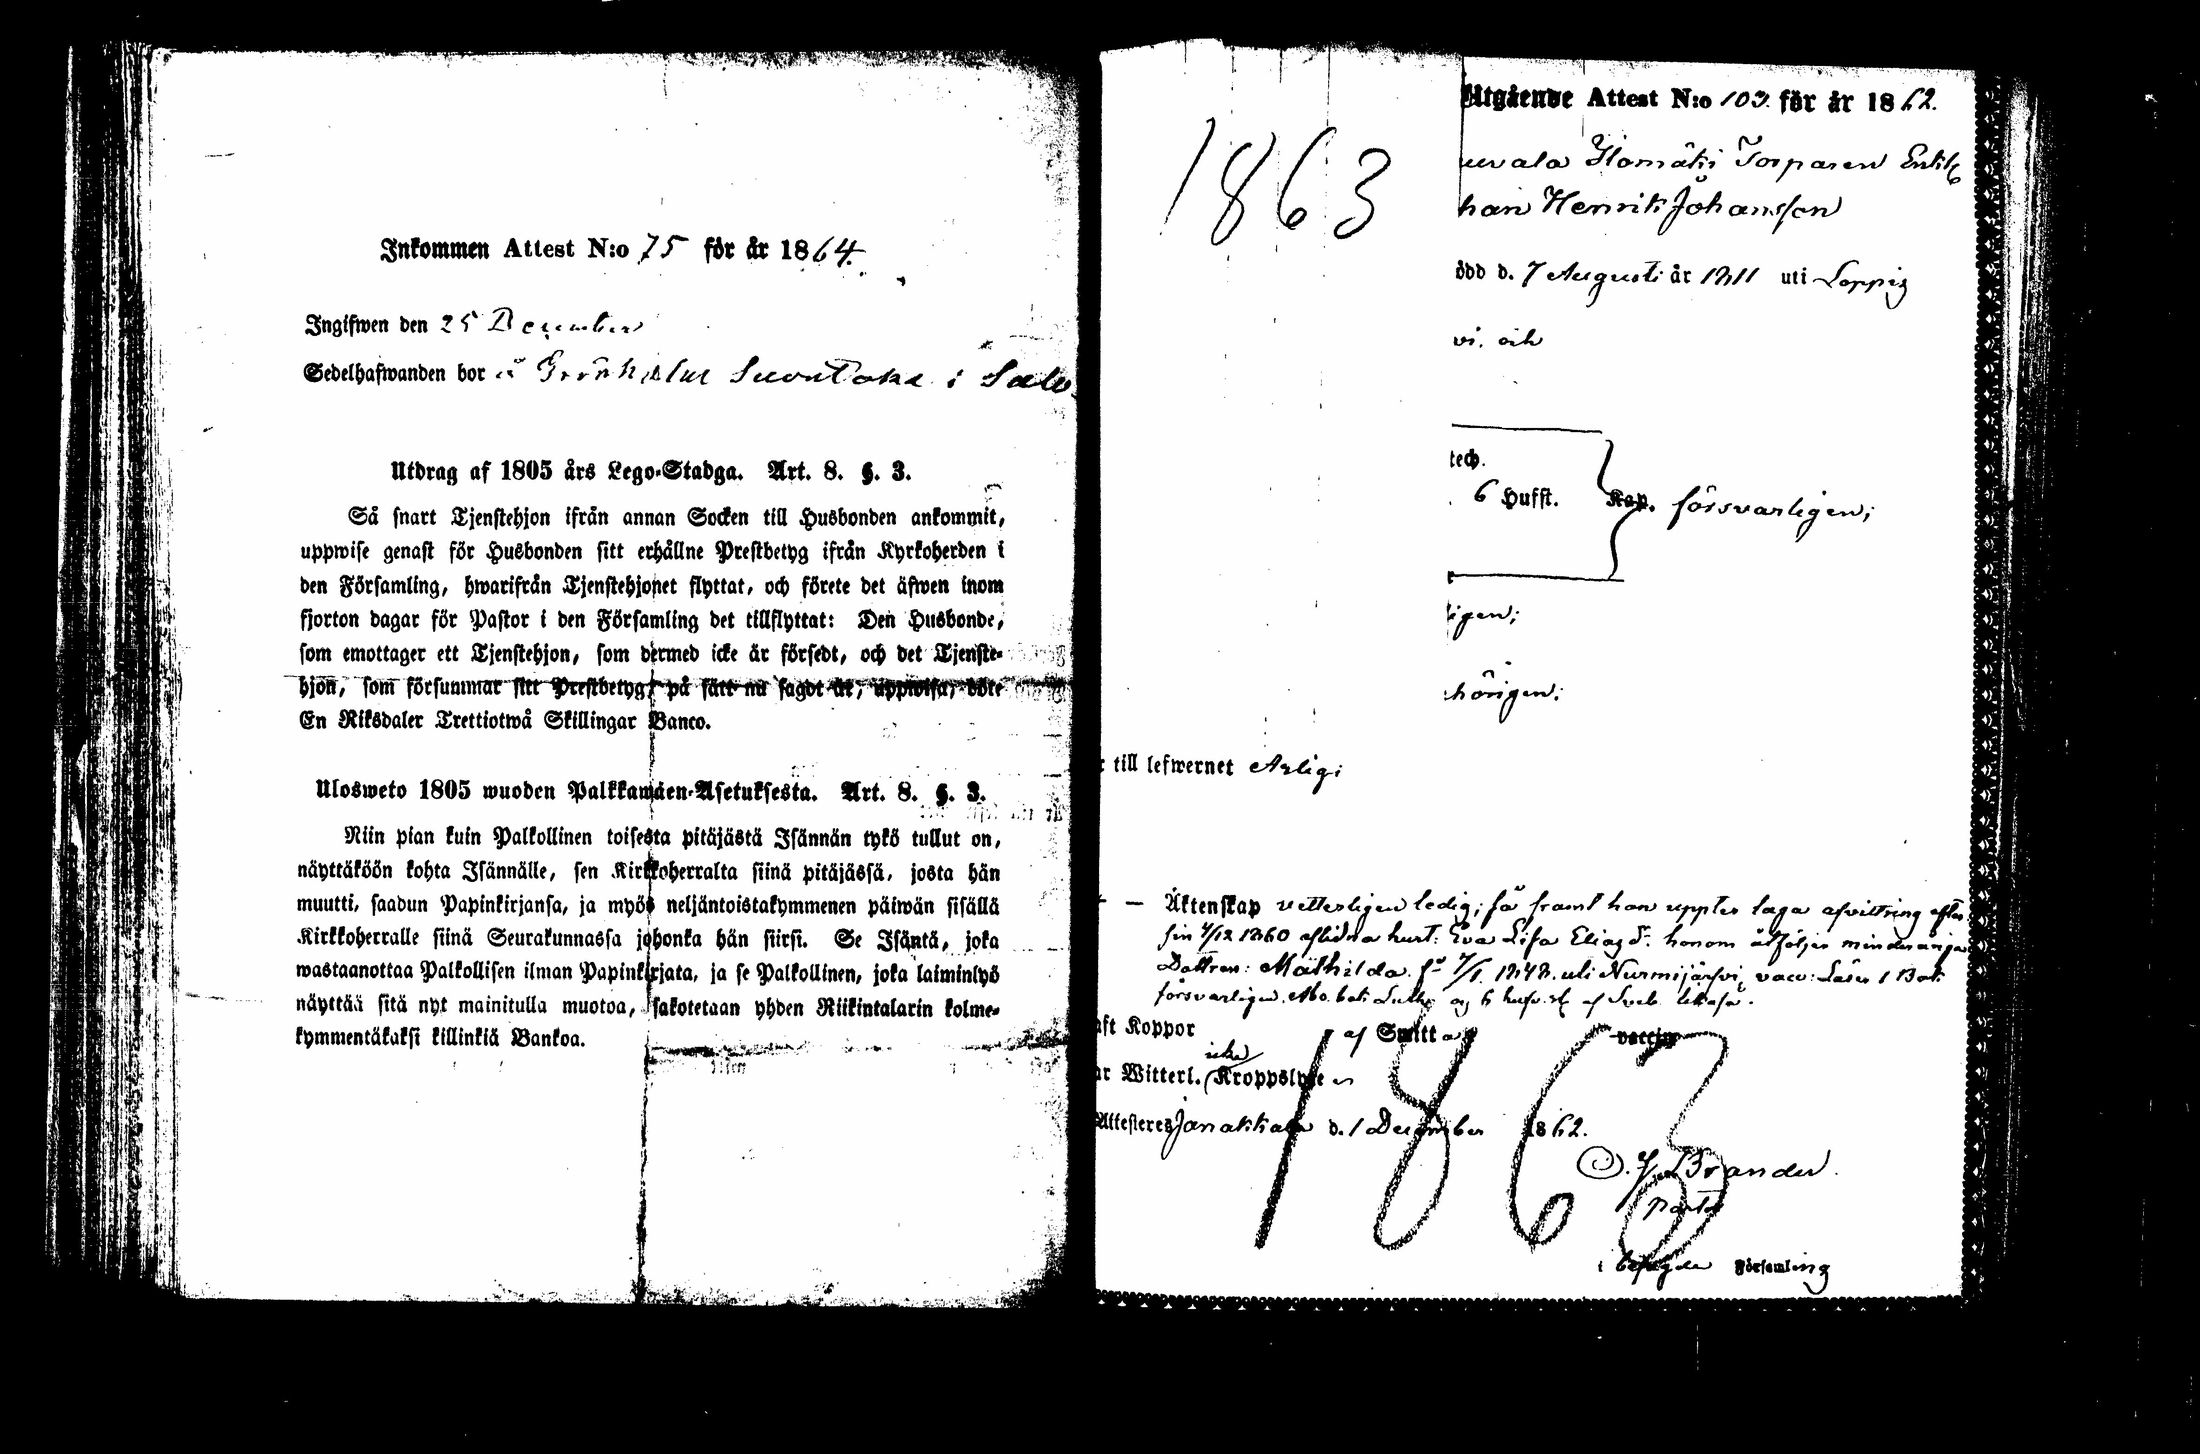 Inkommen Attest N:o 75 för år 1864.
Ingifwen den 25 December
Sedelhafwanden bor å i
Utdrag af 1805 års Lego-Stadga. Art. 8. §. 3.
Så snart Tjenstehjon ifrån annan Socken till Husbonden ankommit,
uppwise genast för Husbonden sitt erhållne Prestbetyg ifrån Kyrkoherden i
den Församling, hwarifrån Tjenstehjonet flyttat, och förete det äfwen inom
fjorton dagar för Pastor i den Församling det tillflyttat: Den Husbonde,
som emottager ett Tjenstehjon, som dermed icke är försedt, och det Tjenste-
hjon, som försummar sitt Prestbetyg, på sätt nu sagdt är, uppwisa, böte
En Riksdaler Trettiotwå Skillingar Banco.
Ulosweto 1805 wuoden Palkkamäen-Asetuksesta. Art. 8. §. 3.
Niin pian kuin Palkollinen toisesta pitäjästä Isännän tykö tullut on,
näyttäköön kohta Isännälle, sen Kirkkoherralta siinä pitäjässä, josta hän
muutti, saadun Papinkirjansa, ja myös neljäntoistakymmenen päiwän sisällä
Kirkkoherralle siinä Seurakunnassa johonka hän siirsi. Se Isäntä, joka
wastaanottaa Palkollisen ilman Papinkirjata, ja se Palkollinen, joka laiminlyö
näyttää sitä nyt mainitulla muotoa, sakotetaan yhden Riikintalarin kolme-
kymmentäkaksi killinkiä Bankoa.
1863
Utgående Attest N:o 103. för år 1862.
Ilomäki Torparen Enkl.
han Henrik Johansson
ödd d. 7 Augusti år 1811 uti Loppis
vi. och
tech.
6 Hufst. Kap. försvarligen;
igen;
hörigen;
r till lefwernet Ärlig;
— Äktenskap vetterligen ledig; så framt han uppter laga afvittring efter
sin 4/12 1860 aflidna hust: Eva Lisa Eliasd:. honom åtföljer minderåriga
Dottren: Mathilda. fö 7/1. 1848. uti Nurmijärfvi, vacc: Läser i Bok
försvarligen. Abc. bok Luth: og 6 hufv. st. af Sveb.
aft Koppor af Smitta vaccin
icke
ar Witterl. Kroppslyte
Attesteres Janakkala d. 1 December 1862.
Brander
Past
1863
i besagde Församling